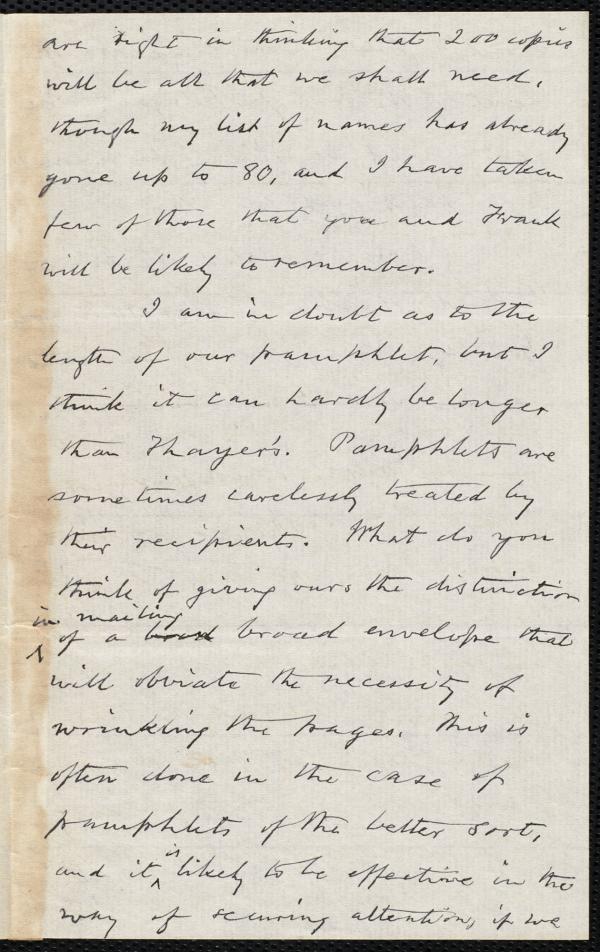 are right in thinking that 200 copies
will be all that we shall need,
though my list of names has already
gone up to 80, and I have taken
few of those that you and Frank
will be likely to remember.
I am in doubt as to the
length of our pamphlet, but I
think it can hardly be longer
than Thayer's. Pamphlets are
sometimes carelessly treated by
their recipients. What do you
think of giving ours the distinction
in mailing
of a broad envelope that
will obviate the necessity of
wrinkling the pages. This is
often done in the case of
pamphlets of the better sort,
and it is likely to be effective in the
way of securing attention, if we